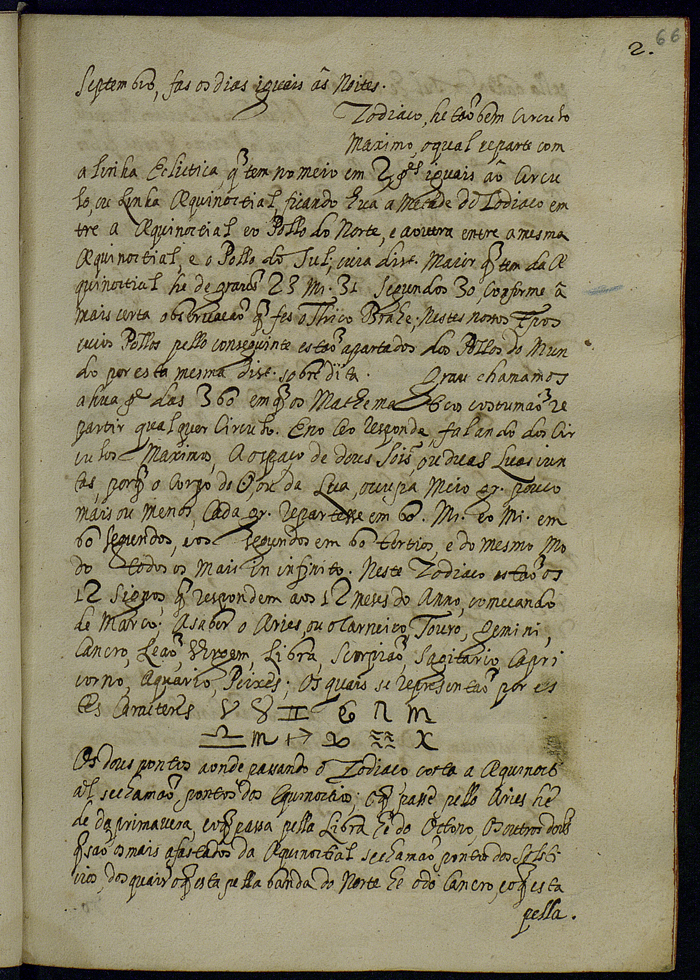 66
2.
Septembro, fas os dias iguais âs Noites.
Zodiaco, he taõ bem Circulo
Maximo, o qual reparte com
a linha Ecliptica, q̃ tem no meio em 2 p.es iguais aõ Circu
lo, ou Linha Æquinoctial, ficando hua a metade do Zodiaco en
tre a Æquinoctial e o Pollo do Norte, e a outra entre a mesma
Æquinoctial, e o Pollo do Sul; cuia dist. Maior q̃ tem da Æ
quinoctial he de graos 23 Mi. 31 Segundos 30, conforme â
mais certa observaçaõ q̃ fes o Thico Brahe; Nestes nossos tpos
cuios Pollos pello conseguinte estaõ apartados dos Pollos do Mun
do por esta mesma dist. sobre dita. Grau chamamos
a hua p.e das 360 em q̃ os Mathematicos costumaõ re
partir qualquer Circulo. E no Ceo responda, falando dos Cir
culos Maximos, A o spaço de dous Sois, ou duas Luas iun
tas, porq̃ o corpo do Sol, ou da Lua, occupa Meio gr. pouco
mais ou menos, Cada gr. repartesse em 60. Mi. e o Mi. em
60 segundos, e os segundos em 60 tertios, e do mesmo Mo
do todos os Mais in infinito. Neste Zodiaco estaõ os
12 Signos q̃ respondem aos 12 meses do Anno, comecando
de Marco; Asaber o Aries, ou o Carneiro, Touro, Gemini,
Cancro, Leaõ, Virgem, Libra, Scorpiaõ, Sagitario, Capri
corno, Aquario, Peixes; Os quais se representaõ por es
tes Caracteres ♈ ♉ ♊ ♋ ♌ ♍
♎ ♏ ♐ ♑ ♒ ♓
Os dous pontos aonde passando o Zodiaco corta a Æquinocti
al se chamaõ pontos dos Equinoctios; o q̃ passa pello Aries hê
de da primavera, e o q̃ passa pella Libra hê do Octono, Os outros dous
q̃ saõ os mais afastados da Æquinoctial se chamaõ pontos dos Solsti
cios, dos quais o q̃ esta pella banda do Norte he o do Cancro, e o q̃ esta
pella.